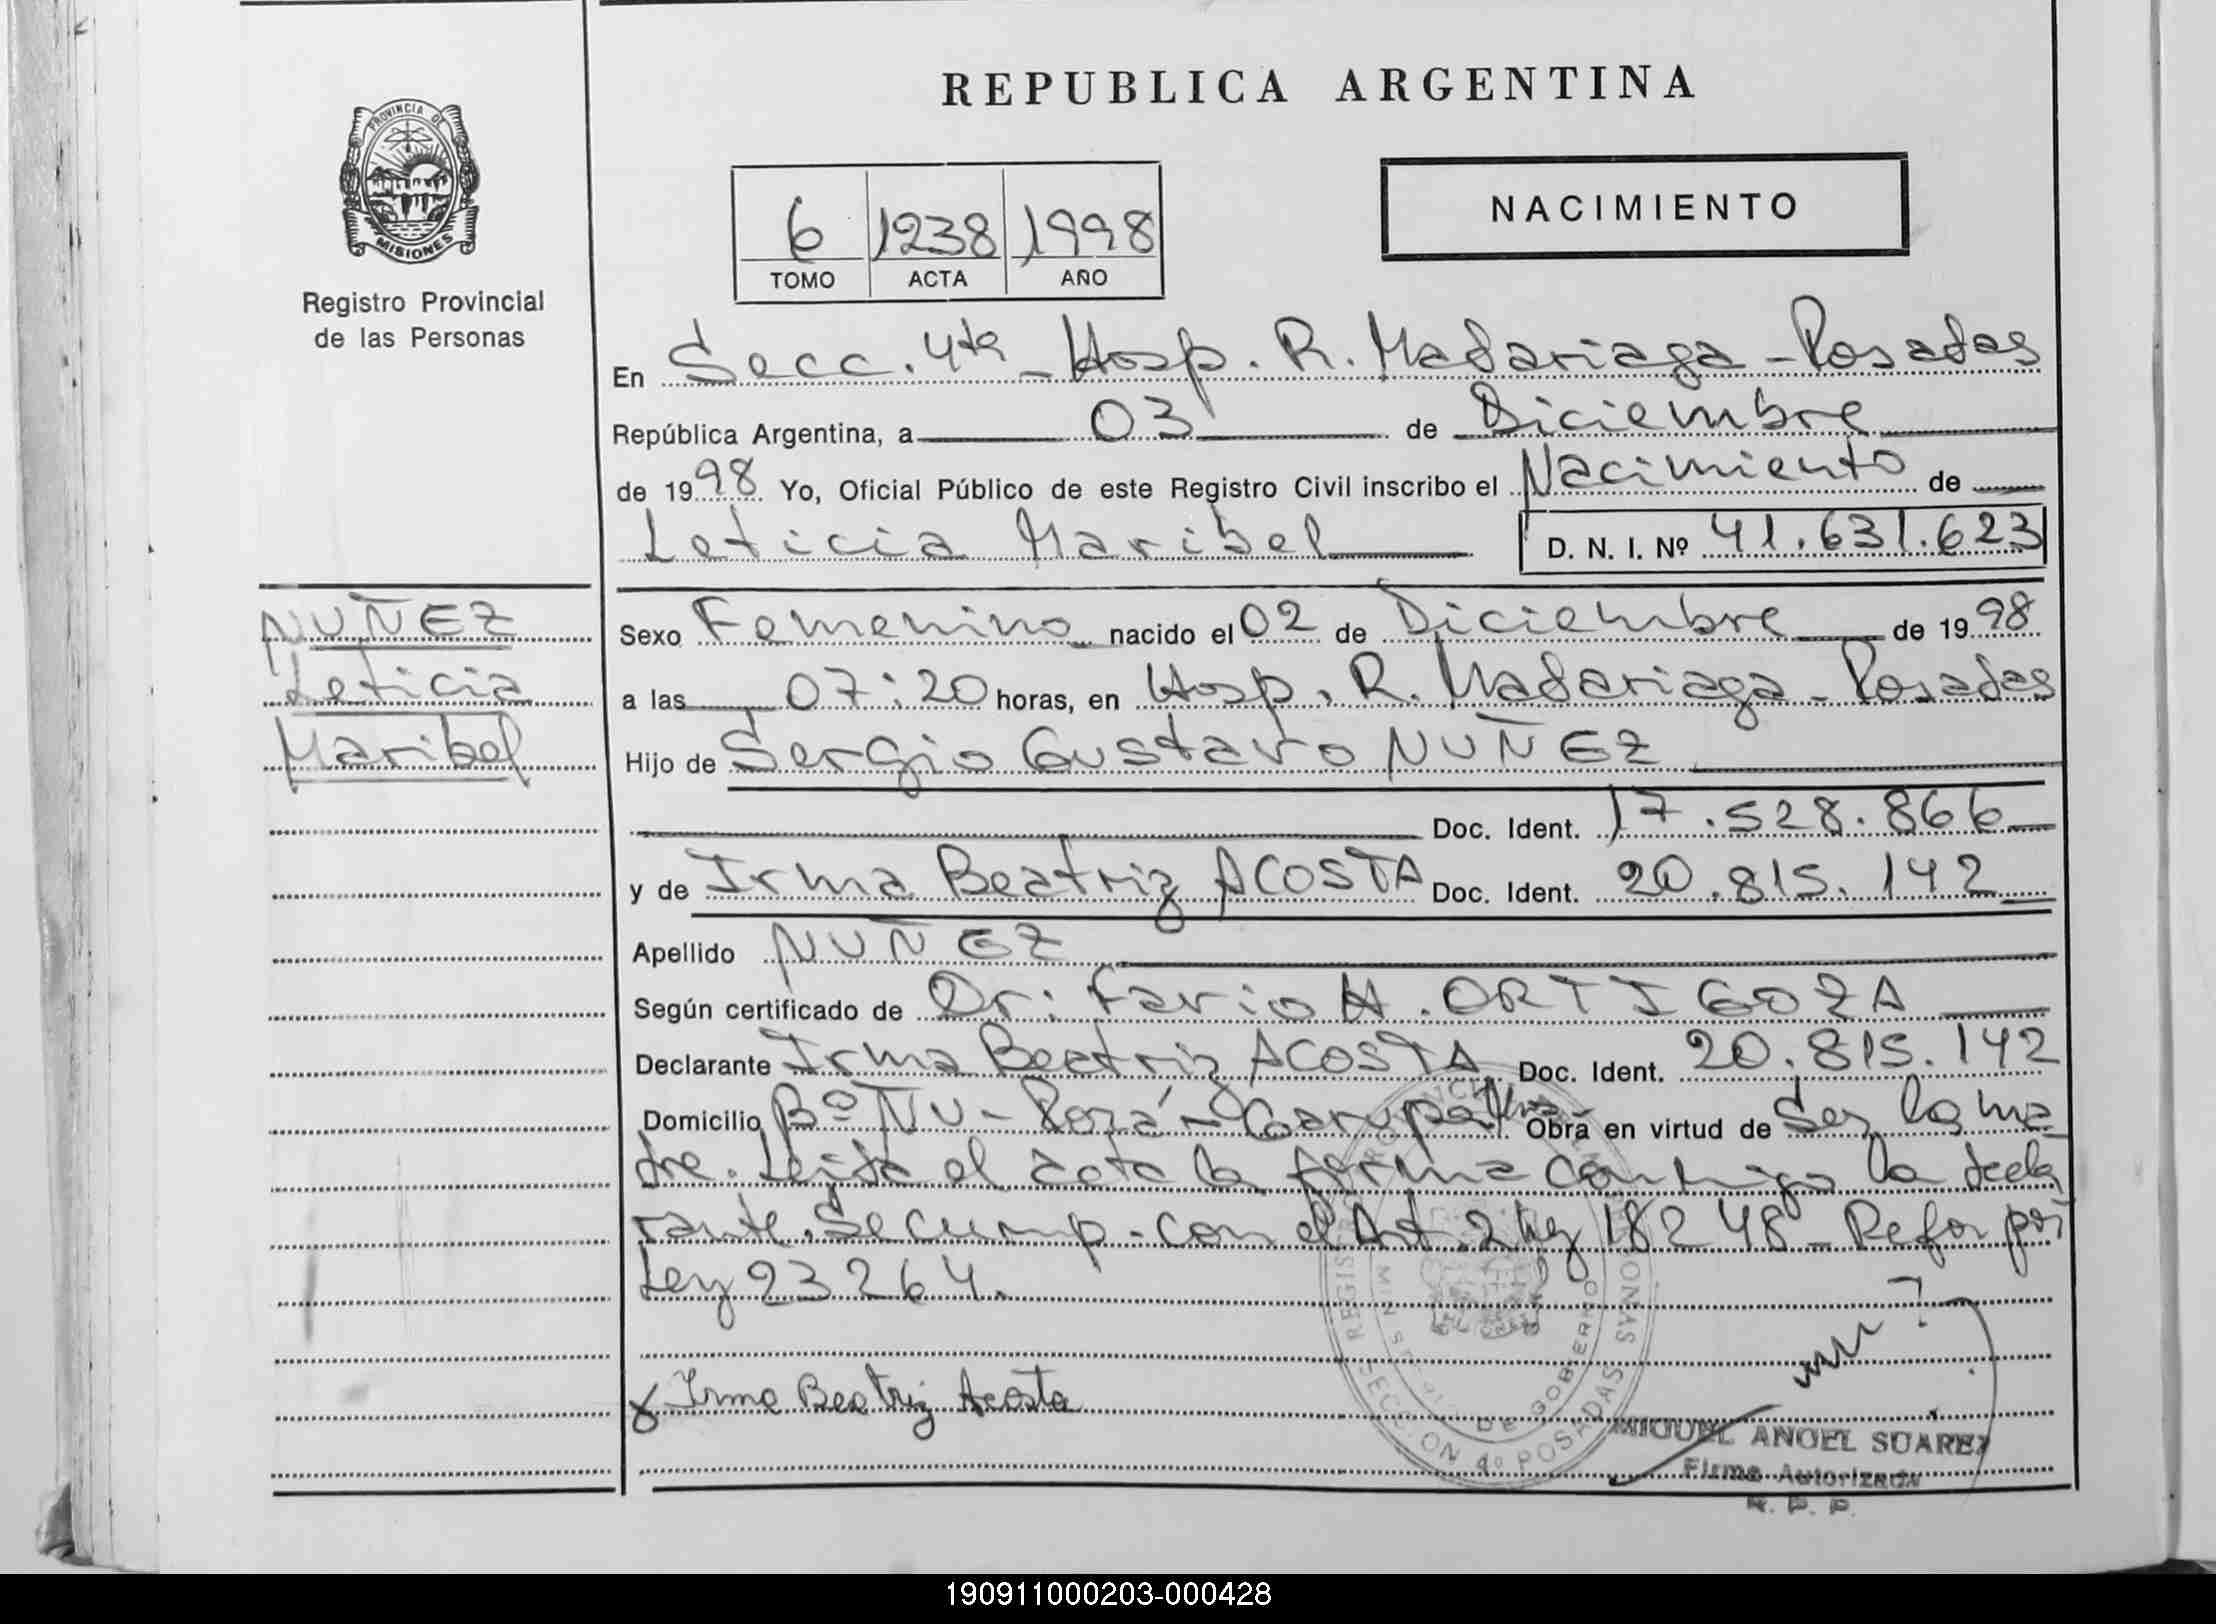 REPUBLICA ARGENTINA
PROVINCIA DE
MISIONES
Registro Provincial
de las Personas
6 1238 1998
TOMO ACTA AÑO
NACIMIENTO
En Secc. 4ta - Hosp. R. Madariaga - Posadas
República Argentina, a 03 de Diciembre
de 1998 Yo, Oficial Público de este Registro Civil inscribo el Nacimiento de
Leticia Maribel D. N. I. Nº 41.631.623
NUÑEZ
Leticia
Maribel
Sexo Femenino nacido el 02 de Diciembre de 1998
a las 07:20 horas, en Hosp. R. Madariaga - Posadas
Hijo de Sergio Gustavo NUÑEZ
Doc. Ident. 17.528.866
y de Irma Beatriz ACOSTA Doc. Ident. 20.815.142
Apellido NUÑEZ
Según certificado de Dr: Favio H. ORTIGOZA
Declarante Irma Beatriz ACOSTA Doc. Ident. 20.815.142
Domicilio Bº Ñu - Porá - Garupá Obra en virtud de Ser la ma
dre. Leida el acta la firma conmigo la decla
rante. Se cump. con el Art. 2 ley 18248 - Refor por
Ley 23264.
Irma Beatriz Acosta
DE GOBIERNO
SECCION 4º POSADAS
MIGUEL ANGEL SUAREZ
Firma Autorizada
R. P. P.
190911000203-000428